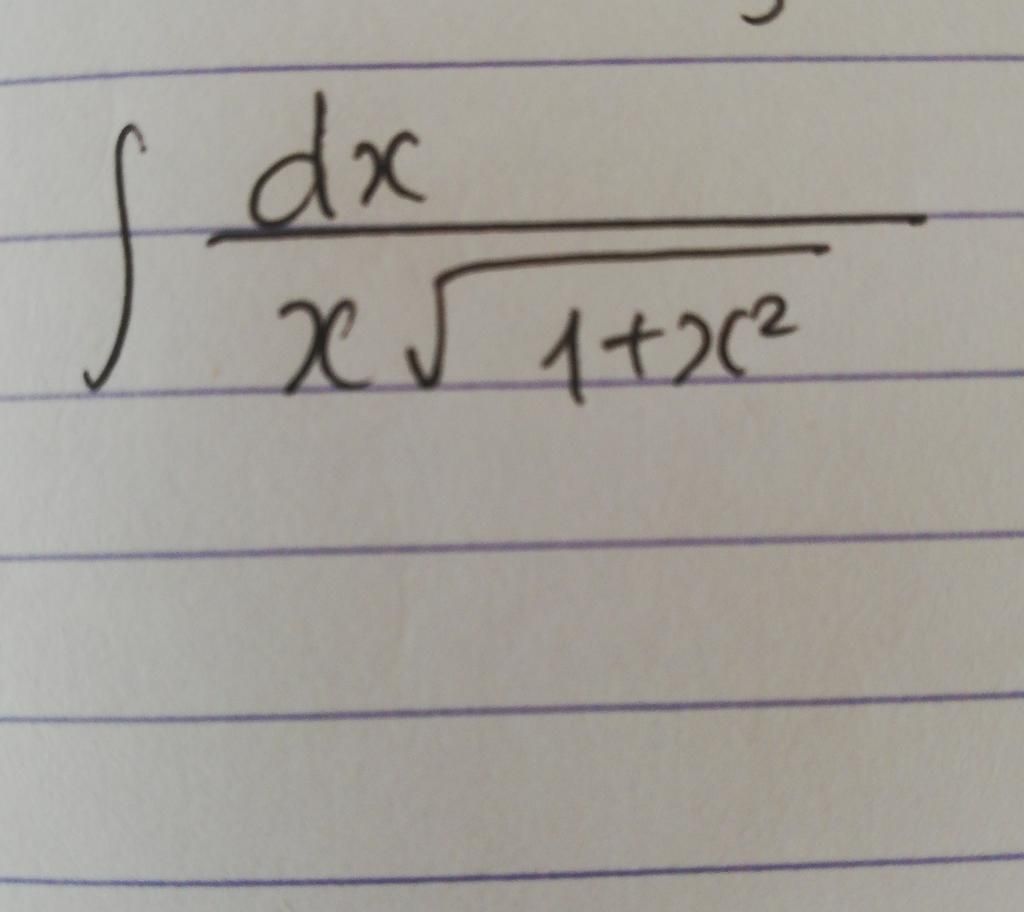 ∫ dx / x√(1+x²)